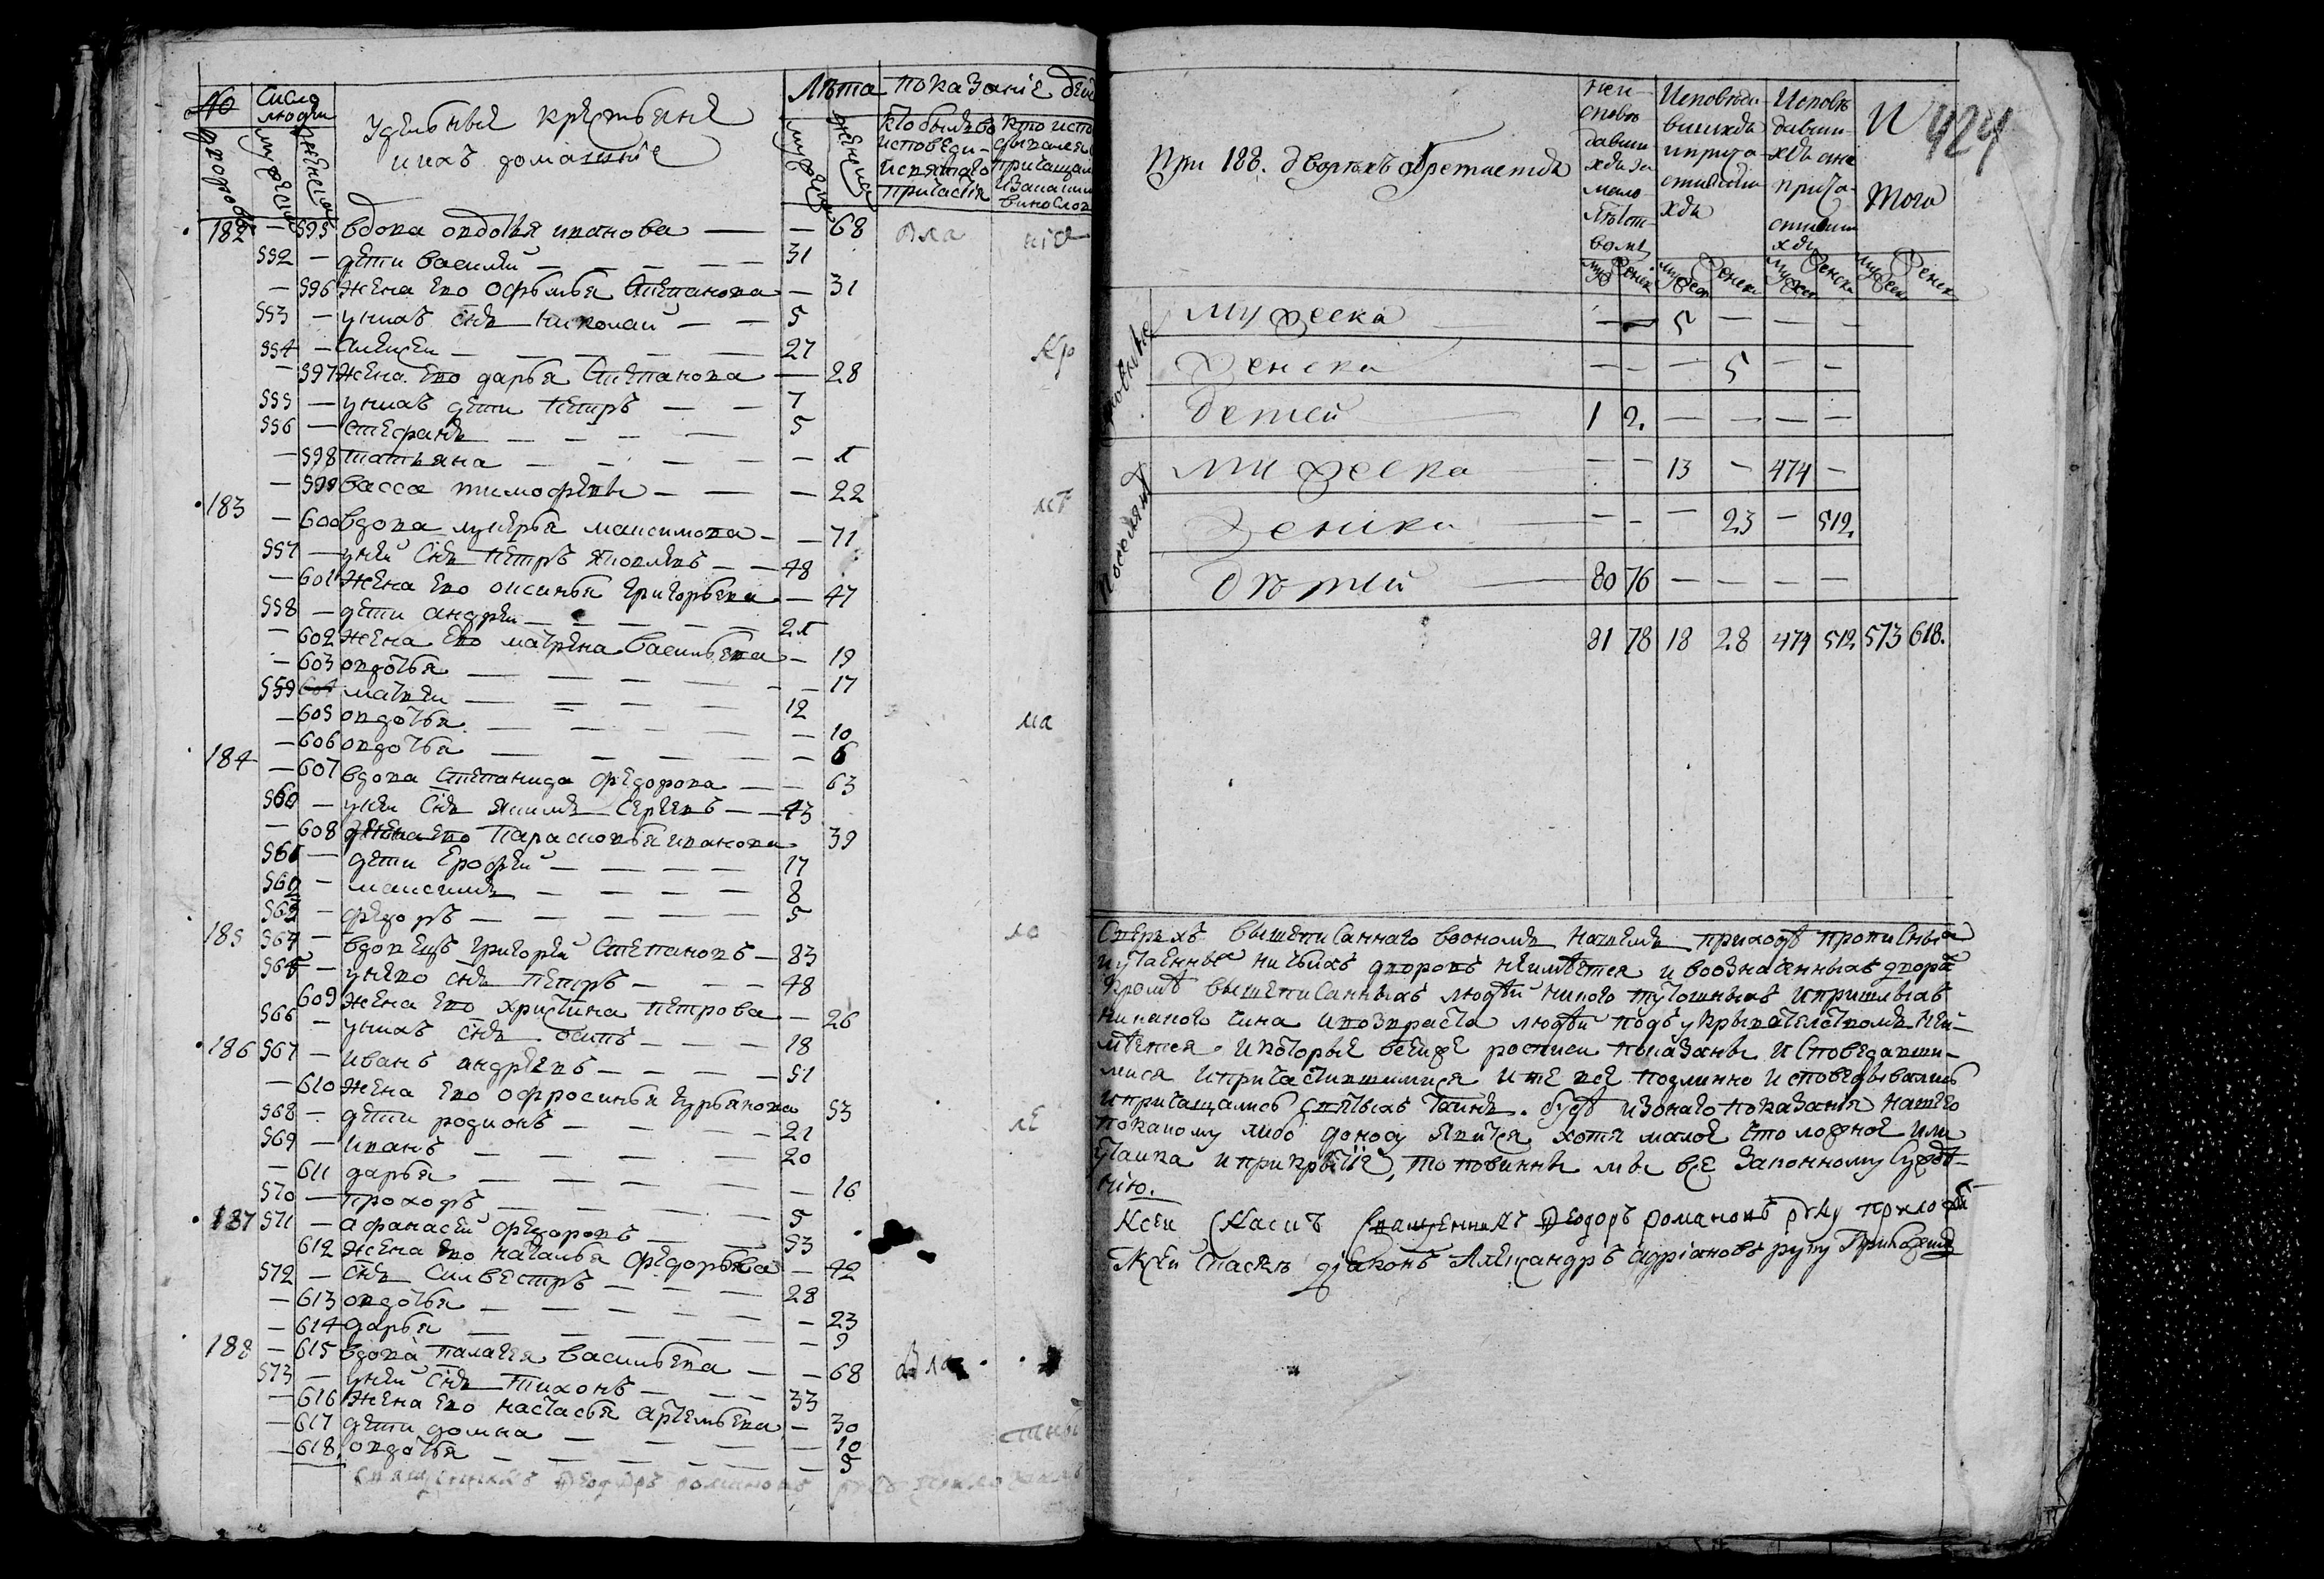 № дворовъ
Число людей
мужеска
женска
Удѣльныя крестьяне
и ихъ домашніе
Лѣта
мужеска
женска
показаніе
кто былъ во
исповеди
и святаго
причастія
182 — 595 вдова овдотья иванова — — 68
552 — дѣти василей — 31
— 596 жена ево офимья степанова — 31
553 — у нихъ снъ николаи — 5
554 — алексеи — 27
— 597 жена ево дарья степанова — 28
555 — у нихъ дѣти петръ — 7
556 — стефанъ — 5
— 598 татьяна — — 1
— 599 васса тимофѣева — — 22
183 — 600 вдова лукерья максимова — — 71
557 — у ней снъ петръ яковлевъ — 48
— 601 жена ево аксинья григорьева — 47
558 — дѣти андреи — 21
— 602 жена ево матрена васильева — 19
— 603 овдотья — — 17
559 матвеи — 12
— 605 овдотья — — 10
— 606 овдотья — — 6
184 — 607 вдова степанида федорова — — 63
560 — у ней снъ якимъ сергеевъ — 43
— 608 жена ево парасковья иванова 39
561 — дѣти ерофей — 17
562 — максимъ — 8
563 — федоръ — 5
185 564 — вдовецъ григорей степановъ — 83
565 — у нево снъ петръ — 48
609 жена ево христина петрова — 26
566 — у нихъ снъ осипъ — 18
186 567 — иванъ андреевъ — 51
— 610 жена ево офросинья гурьянова 53
568 — дѣти родионъ — 21
569 — иванъ — 20
— 611 дарья — — 16
570 — прохоръ — 5
187 571 — афанасей федоровъ — 53
612 жена ево наталья федорова — 42
572 — снъ силвестръ — 28
— 613 овдотья — — 23
— 614 дарья — — 9
188 — 615 вдова палагея васильева — — 68
573 — у ней снъ тихонъ — 33
— 616 жена ево настасья артемьева — 30
— 617 дѣти домна — — 10
— 618 овдотья — — 5
священникъ Ѳеодоръ романовъ руку приложилъ
424
При 188. дворѣхъ обретается
неи
спове
давши
хся за
мало
лѣтст
вомъ
Исповеда
вшихся
и прича
стивши
хся
Исповѣ
давши
хся а не
прича
стивши
хся
И
того
мужеска — — 5 — — —
женска — — — 5 — —
детей 1 2. — — — —
поселянъ
мужеска — — 13 — 474 —
женска — — — 23 — 512.
дѣтей 80 76 — — — —
81 78 18 28 474 512. 573 618.
Сверьхъ вышеписаннаго во ономъ нашемъ приходѣ прописныхъ
и утаенныхъ ничьихъ дворовъ неимѣется и в означенныхъ двора
кромѣ вышеписанныхъ людѣй никого тутошныхъ и пришлыхъ
никакого чина и возраста людѣй подъ укрывательствомъ неи-
мѣется. и которыя в сей же росписи показаны исповедавши-
мися и причастившимися и те все подлинно исповедывались
и причащались святыхъ таинъ. буде из онаго показания нашего
по какому либо доносу явится хотя малое что ложное или
утаика и прикрытіе, то повинны мы все законному сужде-
нію.
К сеи сказке священникъ Ѳеодоръ романовъ руку приложилъ
К сеи сказке дiаконъ Александръ адрiановъ руку приложилъ